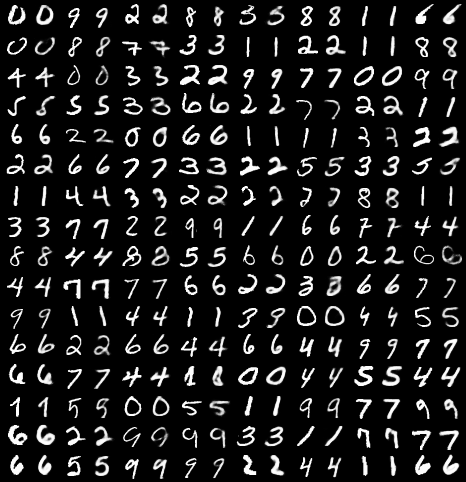 0 0 9 9 2 2 8 8 3 5 8 8 1 1 6 6
0 0 8 8 7 7 3 3 1 1 2 2 1 1 8 8
4 4 0 0 3 3 2 2 9 9 7 7 0 0 9 9
5 5 5 5 3 3 6 6 2 2 7 7 2 2 1 1
6 6 2 2 0 0 6 6 1 1 1 1 3 3 2 2
2 2 6 6 7 7 3 3 2 2 5 5 3 3 5 5
1 1 4 4 3 3 2 2 2 2 2 2 8 8 1 1
3 3 7 7 2 2 9 9 1 1 6 6 7 7 4 4
8 8 4 4 8 8 5 5 6 6 0 0 2 2 6 6
4 4 7 7 7 7 6 6 2 2 3 3 6 6 7 7
9 9 1 1 4 4 1 1 3 9 0 0 4 4 5 5
6 6 2 2 6 6 4 4 6 6 4 4 9 9 7 7
6 6 7 7 4 4 1 8 0 0 4 4 5 5 4 4
1 1 5 5 0 0 5 5 1 1 9 9 7 7 9 9
6 6 2 2 9 9 9 9 3 3 1 1 7 7 7 7
6 6 5 5 9 9 9 9 2 2 4 4 1 1 6 6